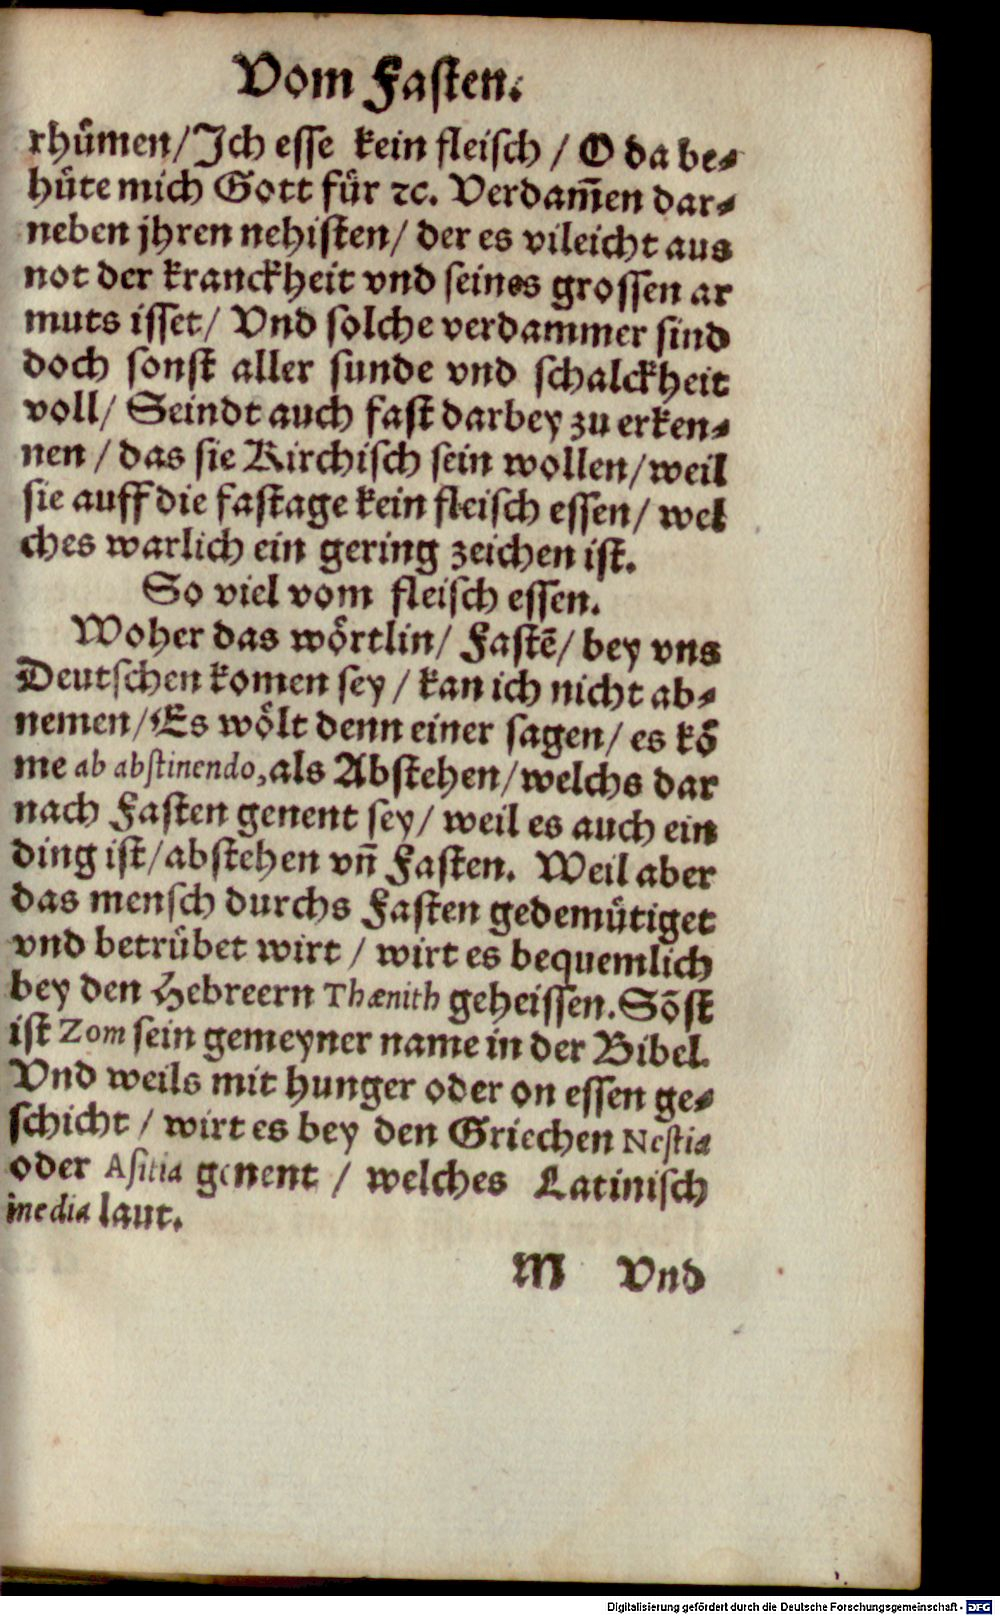 Vom Fasten.
rhümen/Ich esse kein fleisch / O da be-
hüte mich Gott für ꝛc. Verdam̃en dar-
neben jhren nehisten/ der es vileicht aus
not der kranckheit vnd seines grossen ar
muts isset/ Vnd solche verdammer sind
doch sonst aller sunde vnd schalckheit
voll/ Seindt auch fast darbey zu erken-
nen / das sie Kirchisch sein wollen/weil
sie auff die fastage kein fleisch essen/ wel
ches warlich ein gering zeichen ist.
So viel vom fleisch essen.
Woher das wörtlin/ Fastē/ bey vns
Deutschen komen sey / kan ich nicht ab-
nemen/Es wölt denn einer sagen/ es kō
me ab abstinendo, als Abstehen/welchs dar
nach Fasten genent sey/ weil es auch ein
ding ist/abstehen vñ Fasten. Weil aber
das mensch durchs Fasten gedemütiget
vnd betrübet wirt / wirt es bequemlich
bey den Hebreern Thænith geheissen. Sōst
ist Zom sein gemeyner name in der Bibel.
Vnd weils mit hunger oder on essen ge-
schicht / wirt es bey den Griechen Nestia
oder Asitia genent / welches Latinisch
inedia laut.
M Vnd
Digitalisierung gefördert durch die Deutsche Forschungsgemeinschaft - DFG